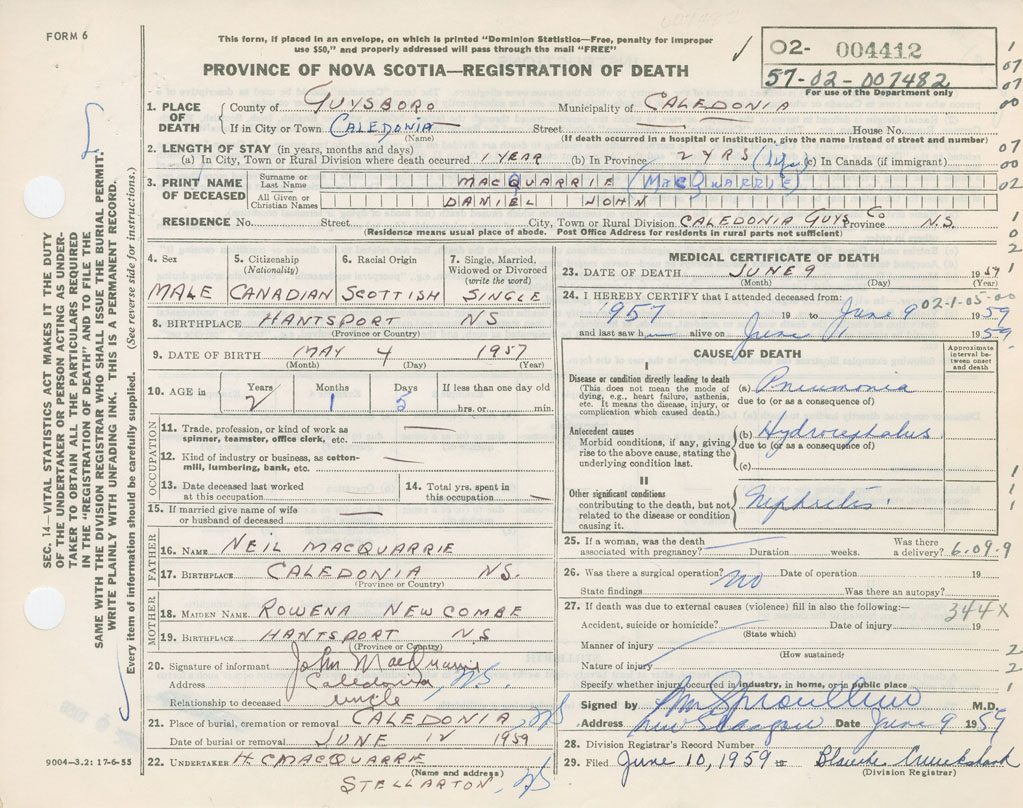 FORM 6
This form, if placed in an envelope, on which is printed "Dominion Statistics—Free, penalty for improper
use $50," and properly addressed will pass through the mail "FREE"
PROVINCE OF NOVA SCOTIA—REGISTRATION OF DEATH
02- 004412
57-02-007482
For use of the Department only
1. PLACE OF DEATH
County of GUYSBORO Municipality of CALEDONIA
If in City or Town CALEDONIA Street House No.
(Name) (If death occurred in a hospital or institution, give the name instead of street and number)
2. LENGTH OF STAY (in years, months and days)
(a) In City, Town or Rural Division where death occurred 1 YEAR (b) In Province 2 YRS (life) (c) In Canada (if immigrant)
3. PRINT NAME OF DECEASED
Surname or Last Name MACQUARRIE (MACQUARRIE)
All Given or Christian Names DANIEL JOHN
RESIDENCE No. Street City, Town or Rural Division CALEDONIA GUYS Co Province N.S.
(Residence means usual place of abode. Post Office Address for residents in rural parts not sufficient)
4. Sex MALE
5. Citizenship (Nationality) CANADIAN
6. Racial Origin SCOTTISH
7. Single, Married, Widowed or Divorced (write the word) SINGLE
8. BIRTHPLACE HANTSPORT NS
(Province or Country)
9. DATE OF BIRTH MAY 4 1957
(Month) (Day) (Year)
10. AGE in Years 2 Months 1 Days 5 If less than one day old hrs. or min.
OCCUPATION
11. Trade, profession, or kind of work as spinner, teamster, office clerk, etc.
12. Kind of industry or business, as cotton-mill, lumbering, bank, etc.
13. Date deceased last worked at this occupation
14. Total yrs. spent in this occupation
15. If married give name of wife or husband of deceased
FATHER
16. NAME NEIL MACQUARRIE
17. BIRTHPLACE CALEDONIA NS.
(Province or Country)
MOTHER
18. MAIDEN NAME ROWENA NEWCOMBE
19. BIRTHPLACE HANTSPORT N.S
(Province or Country)
20. Signature of informant John MacQuarrie
Address Caledonia NS.
Relationship to deceased uncle
21. Place of burial, cremation or removal CALEDONIA, NS
Date of burial or removal JUNE 12 1959
22. UNDERTAKER H.C MACQUARRIE
(Name and address)
STELLARTON, NS
9004—3.2: 17-6-55
MEDICAL CERTIFICATE OF DEATH
23. DATE OF DEATH JUNE 9 1959
(Month) (Day) (Year)
24. I HEREBY CERTIFY that I attended deceased from:
1957 19 to June 9 1959
02-1-05-00
and last saw h alive on June 1 1959
CAUSE OF DEATH
Approximate interval between onset and death
I
Disease or condition directly leading to death
(This does not mean the mode of dying, e.g., heart failure, asthenia, etc. It means the disease, injury, or complication which caused death.)
(a) Pneumonia
due to (or as a consequence of)
Antecedent causes
Morbid conditions, if any, giving rise to the above cause, stating the underlying condition last.
(b) Hydrocephalus
due to (or as a consequence of)
(c)
II
Other significant conditions
contributing to the death, but not related to the disease or condition causing it.
Nephritis.
25. If a woman, was the death associated with pregnancy? Duration weeks. Was there a delivery?
6.09.9
26. Was there a surgical operation? No Date of operation 19
State findings Was there an autopsy?
27. If death was due to external causes (violence) fill in also the following:—
344X
Accident, suicide or homicide? Date of injury 19
(State which)
Manner of injury
(How sustained)
Nature of injury
Specify whether injury occurred in industry, in home, or in public place
Signed by M.D.
Address New Glasgow Date June 9 1959
28. Division Registrar's Record Number
29. Filed June 10, 1959 19 Blanche Cruickshank
(Division Registrar)
SEC. 14—VITAL STATISTICS ACT MAKES IT THE DUTY
OF THE UNDERTAKER OR PERSON ACTING AS UNDER-
TAKER TO OBTAIN ALL THE PARTICULARS REQUIRED
IN THE "REGISTRATION OF DEATH" AND TO FILE THE
SAME WITH THE DIVISION REGISTRAR WHO SHALL ISSUE THE BURIAL PERMIT.
WRITE PLAINLY WITH UNFADING INK. THIS IS A PERMANENT RECORD.
Every item of information should be carefully supplied. (See reverse side for instructions.)